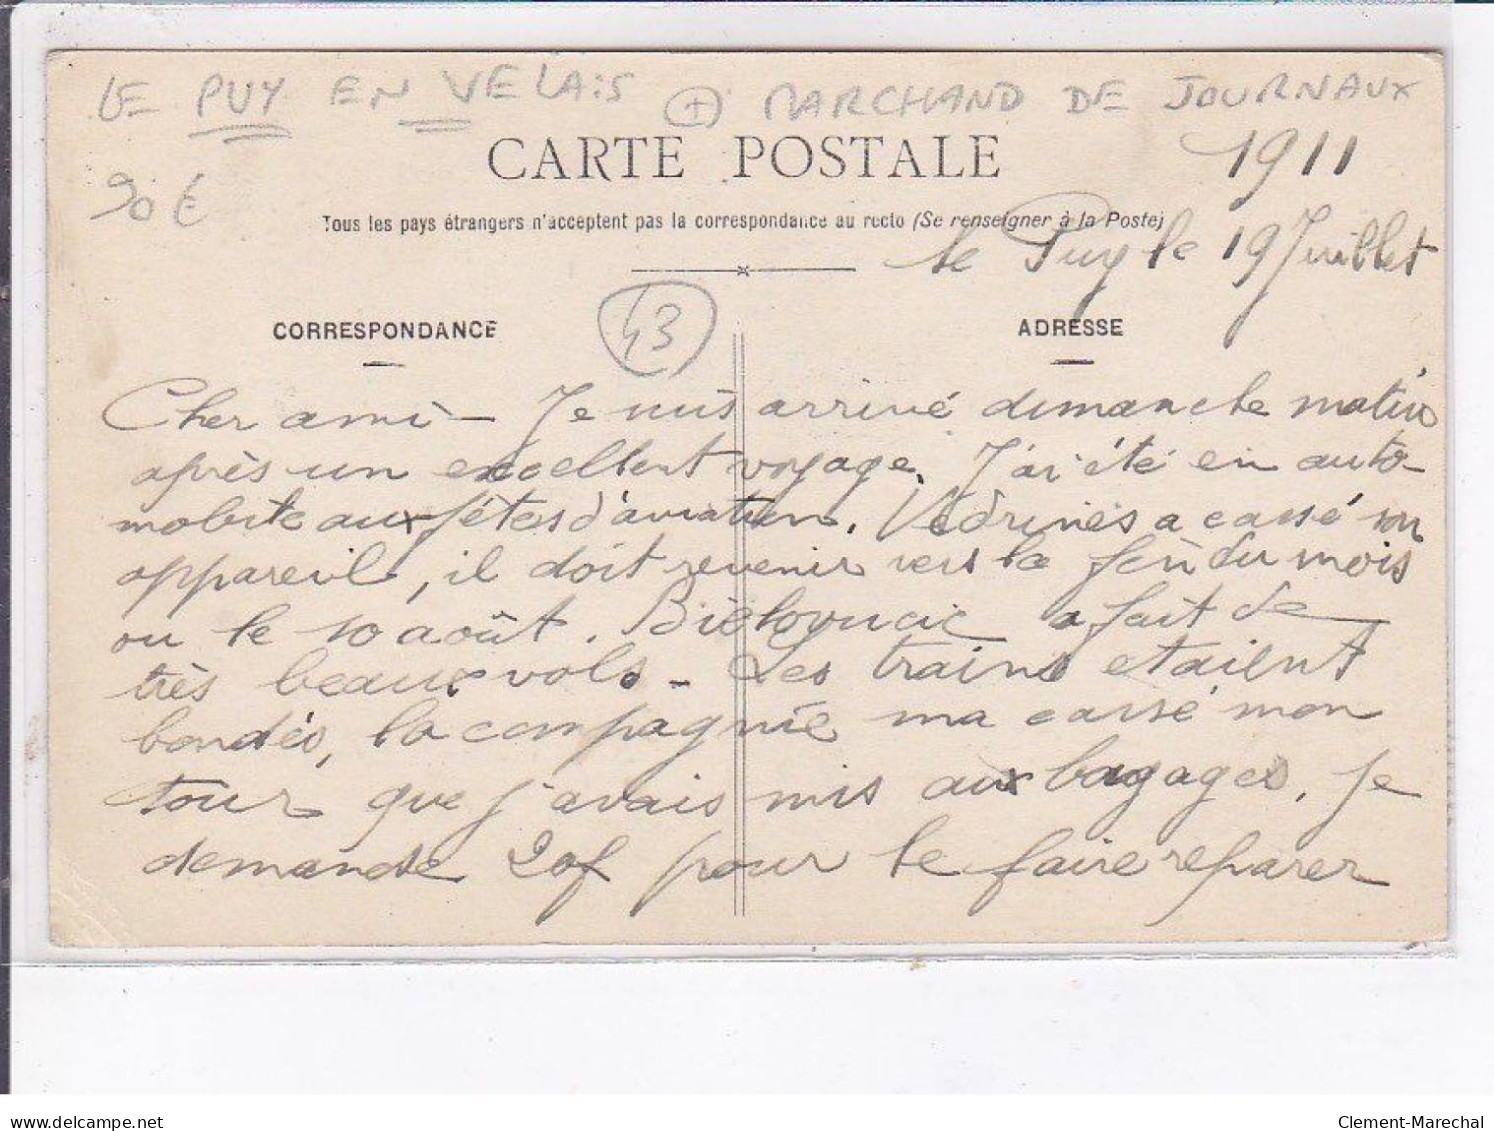 LE PUY EN VELAIS + MARCHAND DE JOURNAUX
CARTE POSTALE
1911
90 €
Tous les pays étrangers n'acceptent pas la correspondance au recto (Se renseigner à la Poste)
le Puy le 19 Juillet
43
CORRESPONDANCE
ADRESSE
Cher ami – Je suis arrivé dimanche matin
après un excellent voyage. J'ai été en auto-
mobile aux fêtes d'aviation. Védrines a cassé son
appareil, il doit revenir vers la fin du mois
ou le 10 août. Bielovucic a fait de
très beaux vols. – Les trains etaient
bondés, la compagnie ma cassé mon
tour que j'avais mis aux bagages. Je
demande 20f pour le faire reparer
delcampe.net
Clement-Marechal